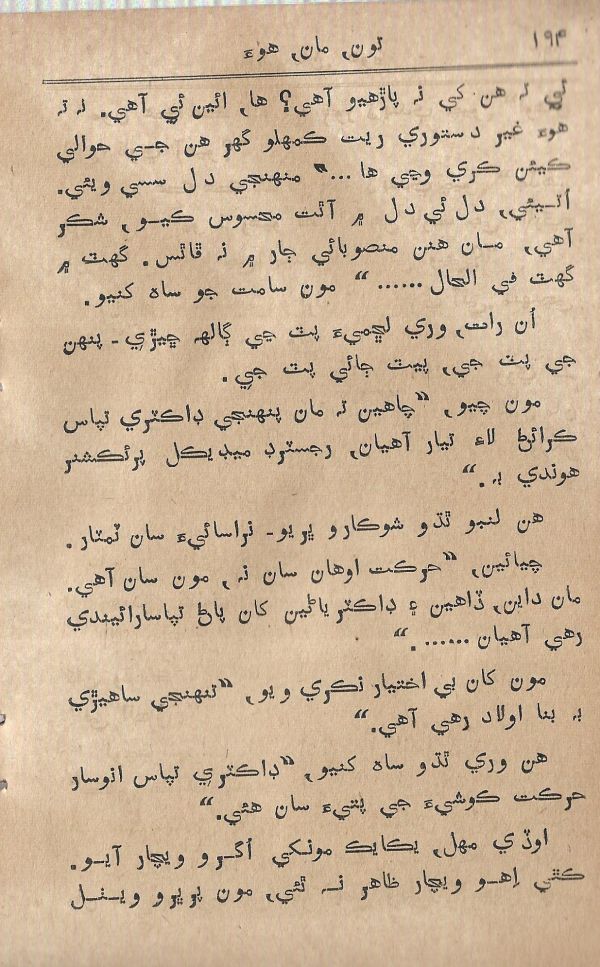 ۱۹۴
تون، مان، هوءَ
ئي نہ هن کي نہ پاڙهيو آهي؟ ها، ائين ئي آهي. نہ تہ
هوءَ غير دستوري ريت ڪمهلو گهر هن جي حوالي
ڪيئن ڪري وڃي ها...” منهنجي دل سسي ويئي.
اُتيئي، دل ئي دل ۾ آٿت محسوس ڪيو، شڪر
آهي، مان هنن منصوبائي ڄار ۾ نہ ڦاٿس. گهٽ ۾
گهٽ في الحال......“ مون سامت جو ساهہ کنيو.
اُن رات، وري لڇميءَ پٽ جي ڳالهہ ڇيڙي۔ پنهن
جي پٽ جي، پيٽ ڄائي پٽ جي.
مون چيو، ”چاهين تہ مان پنهنجي ڊاڪٽري تپاس
ڪرائڻ لاءِ تيار آهيان، رجسٽرڊ ميڊيڪل پرئڪٽشنر
هوندي بہ.“
هن لنبو ٿڌو شوڪارو ڀريو۔ نراسائيءَ سان ٽمٽار.
چيائين، ”حرڪت اوهان سان نہ، مون سان آهي.
مان داين، ڏاهين ۽ ڊاڪٽرياڻين کان پاڻ تپاسارائيندي
رهي آهيان.......“
مون کان بي اختيار نڪري ويو، ”تنهنجي ساهيڙي
بہ بنا اولاد رهي آهي.“
هن وري ٿڌو ساهہ کنيو، ”ڊاڪٽري تپاس انوسار
حرڪت ڪوشيءَ جي پتيءَ سان هئي.“
اوڏي مهل، يڪايڪ مونکي اُگرو ويچار آيو.
ڪٿي اِهو ويچار ظاهر نہ ٿئي، مون پريرو ويٺل